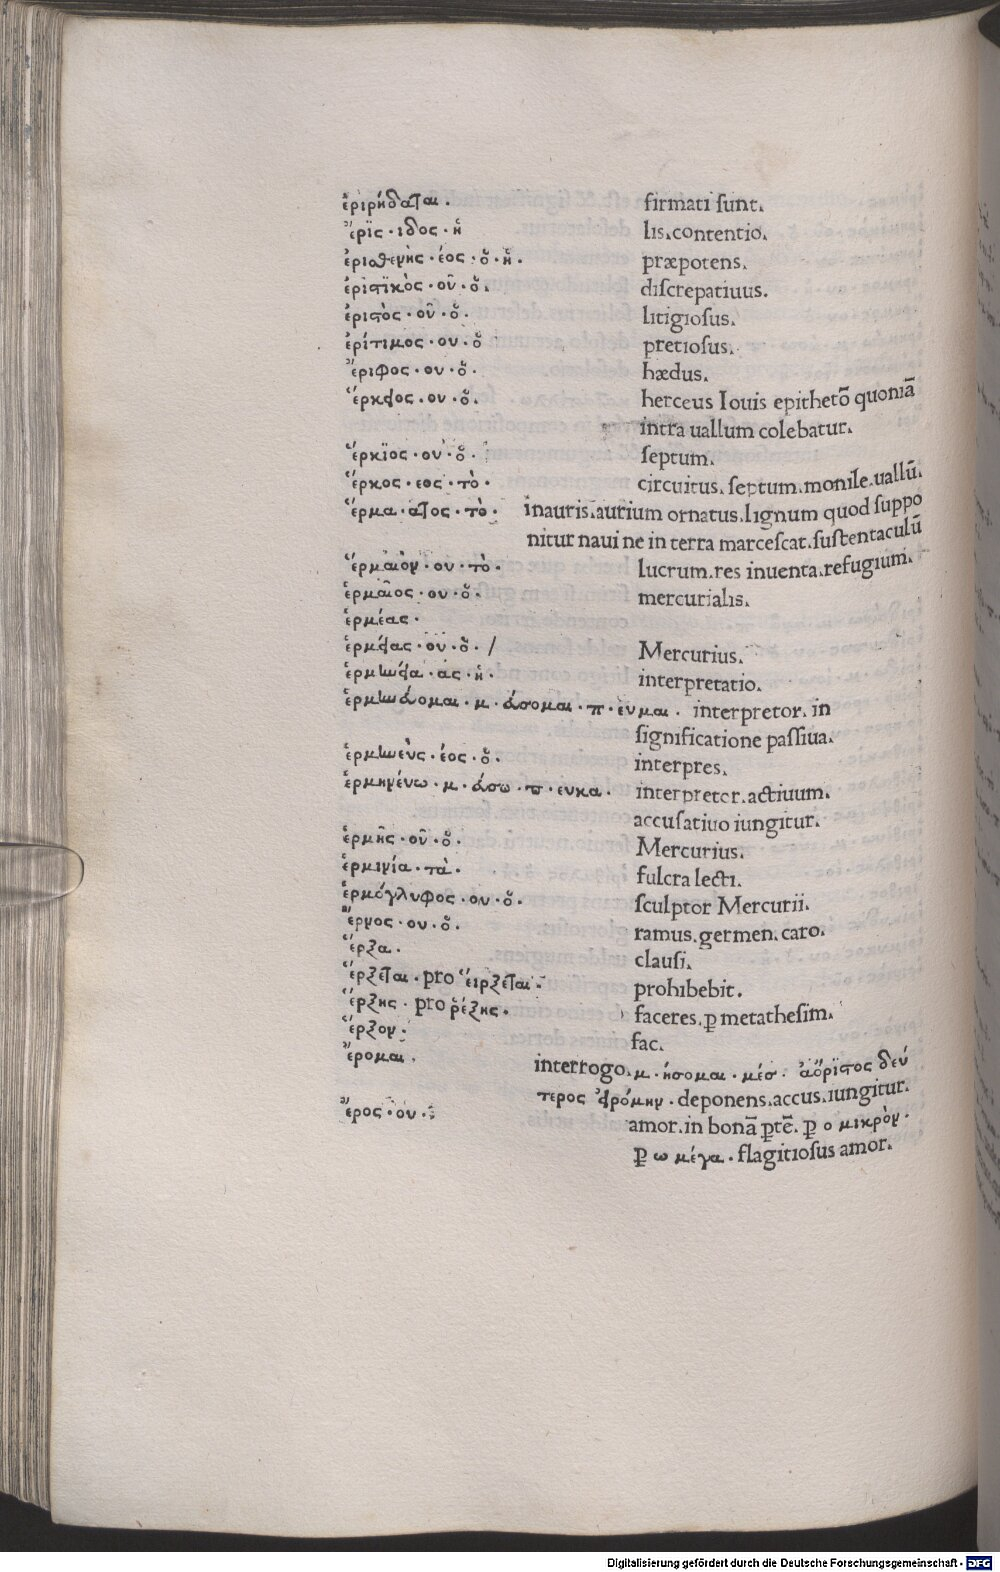 ἐριρήδαται. firmati sunt.
Ἔρϊς·ιδος·ἡ lis.contentio.
ἐρισθενὴς·έος·ὁ·ἡ. præpotens.
ἐριστϊκὸς·οῦ·ὁ. discrepatiuus.
ἐριστὸς·οῦ·ὁ. litigiosus.
ἐρίτιμος·ου·ὁ pretiosus.
Ἔριφος·ου·ὁ. hædus.
Ἕρκειος·ου·ὁ. herceus Iouis epithetō quoniā
intra uallum colebatur.
Ἕρκϊος·ου·ὁ. septum.
Ἕρκος·εος·τὸ. circuitus.septum.monile.uallū.
Ἕρμα·ατος·τὸ. inauris.aurium ornatus.lignum quod suppo
nitur naui ne in terra marcescat.sustentaculū
Ἕρμαιον·ου·τὸ. lucrum.res inuenta.refugium.
ἑρμαῖος·ου·ὁ. mercurialis.
ἑρμέας.
ἑρμείας·ου·ὁ./ Mercurius.
ἑρμηνεία·ας·ἡ. interpretatio.
ἑρμηνεύομαι·μ·εύσομαι·π·ευμαι. interpretor.in
significatione passiua.
ἑρμηνεὺς·έος·ὁ. interpres.
ἑρμηνεύω·μ·εύσω·π·ευκα. interpretor.actiuum.
accusatiuo iungitur.
ἑρμῆς·οῦ·ὁ. Mercurius.
ἑρμινία·τὰ. fulcra lecti.
ἑρμόγλυφος·ου·ὁ. sculptor Mercurii.
Ἔρνος·ου·ὁ. ramus.germen.caro.
Ἕρξα. clausi.
Ἕρξεται·pro Ἕιρξεται. prohibebit.
Ἕρξης·pro ῥέξης. faceres.ꝑ metathesim.
Ἕρξον. fac.
Ἔρομαι. interrogo.μ·ήσομαι·μέσ·ἀόρϊστος δεύ
τερος εἰρόμην·deponens.accus.iungitur.
Ἔρος·ου·ὁ amor.in bonā ꝑtē.ꝑ ο μικρὸν.
ꝑ ω μέγα.flagitiosus amor.
Digitalisierung gefördert durch die Deutsche Forschungsgemeinschaft - DFG